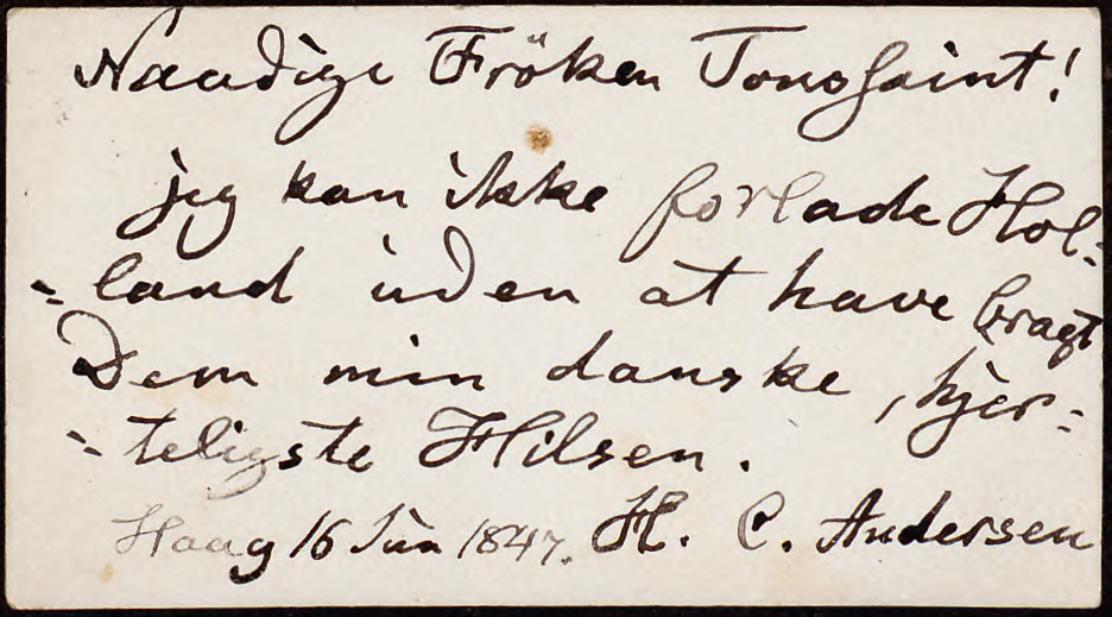 Naadige Fröken Toussaint!
jeg kan ikke forlade Hol-
-land uden at have bragt
Dem min danske, hjer-
-teligste Hilsen.
Haag 16 Jun 1847. H. C. Andersen